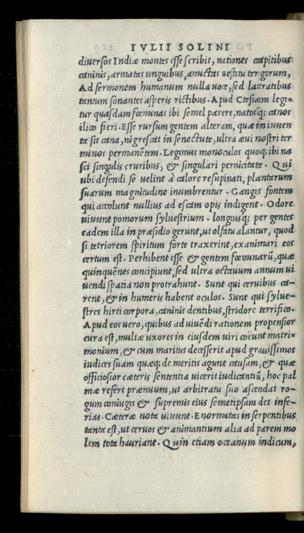 IVLII SOLINI
diuersos Indiæ montes esse scribit, nationes capitibus
caninis, armatas unguibus, amictas uestitu tergorum,
Ad sermonem humanum nulla uoce, sed latratibus
tantum sonantes asperis rictibus. Apud Ctesiam legi=
tur quasdam fœminas ibi semel parere, natosq; canos
ilico fieri. Esse rursum gentem alteram, quæ in iuuen
ta sit cana, nigrescat in senectute, ultra æui nostri ter
minos permanẽtem. Legimus monoculos quoq; ibi na
sci singulis cruribus, & singulari pernicitate. Qui
ubi defendi se uelint à calore resupinati, plantarum
suarum magnitudine inumbrentur. Gangis fontem
qui accolunt nullius ad escam opis indigent. Odore
uiuunt pomorum syluestrium. longiusq; per gentes
eadem illa in præsidio gerunt, ut olfatu alantur, quod
si tetriorem spiritum forte traxerint, exanimari eos
certum est. Perhibent esse & gentem fœminarũ, quæ
quinquẽnes concipiunt, sed ultra octauum annum ui
uendi spatia non protrahunt. Sunt qui ceruibus ca=
rent, & in humeris habent oculos. Sunt qui sylue=
stres hirti corpora, caninis dentibus, stridore terrifico.
Apud eos uero, quibus ad uiuẽdi rationem propensior
cura est, multæ uxores in eiusdem uiri coeunt matri=
monium, & cum maritus decesserit apud grauissimos
iudices suam quæq; de meritis agunt causam, & quæ
officiosior cæteris sententia uicerit iudicantiũ, hoc pal
mæ refert præmium, ut arbitratu suo ascendat ro=
gum coniugis & supremis eius semetipsam det infe=
rias. Cæteræ nota uiuunt. Enormitas in serpentibus
tanta est, ut ceruos & animantium alia ad parem mo
lem tota hauriant. Quin etiam oceanum indicum,